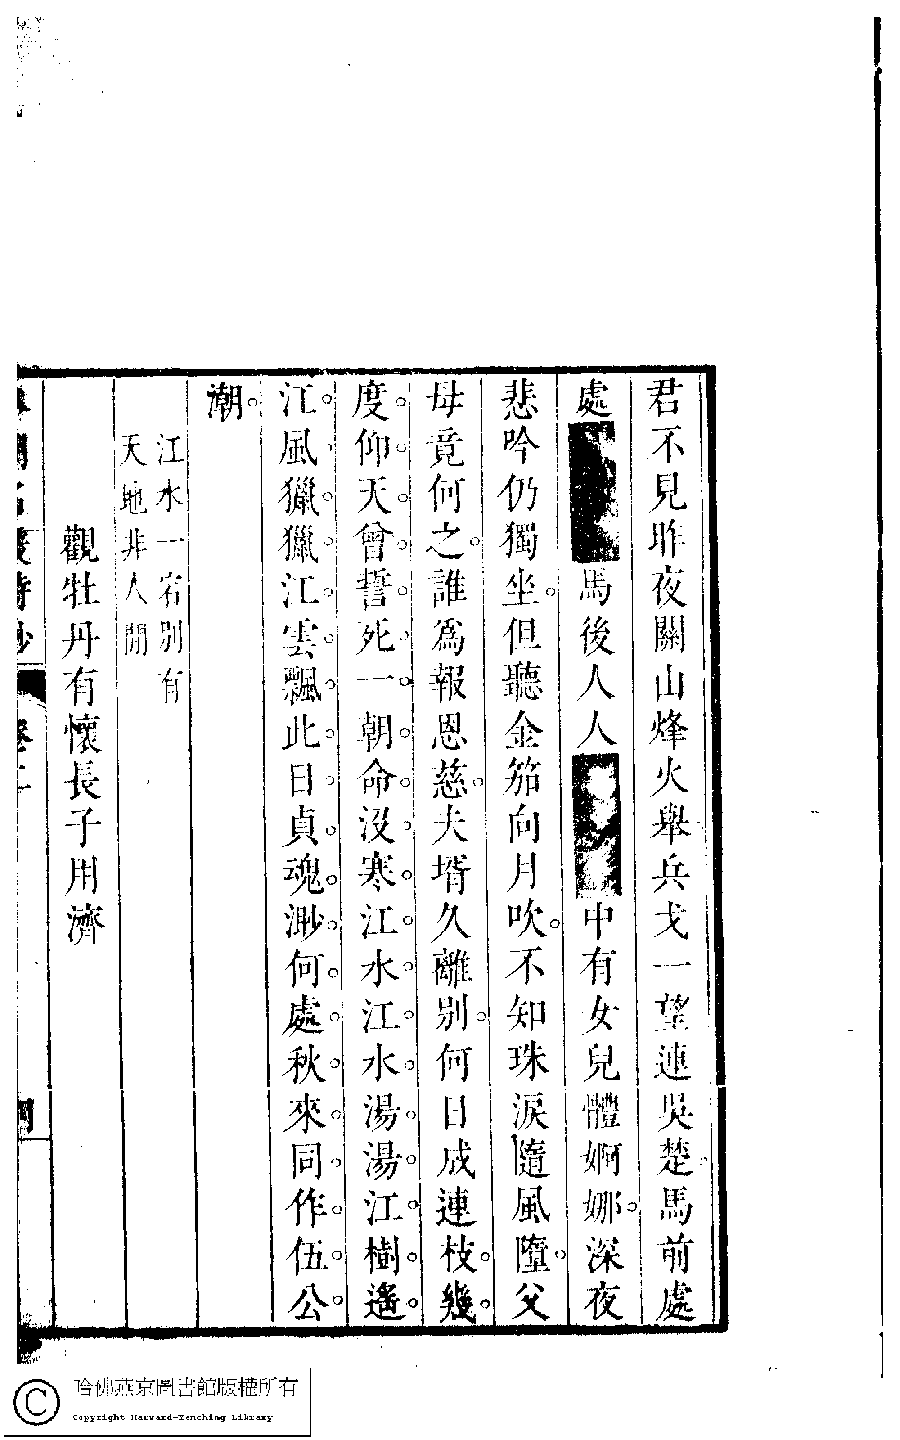 君不見昨夜關山烽火舉兵戈一望連吳楚馬前處
處馬後人人中有女兒體婀娜深夜
悲吟仍獨坐但聽金笳向月吹不知珠淚隨風墮父
母竟何之誰為報恩慈夫壻久離別何日成連枝幾
度仰天曾誓死一朝命沒寒江水江水湯湯江樹遙
江風獵獵江雲飄此日貞魂渺何處秋來同作伍公
潮
江水一宕別有
天地非人間
觀牡丹有懷長子用濟
哈佛燕京圖書館版權所有
Copyright Harvard-Yenching Library